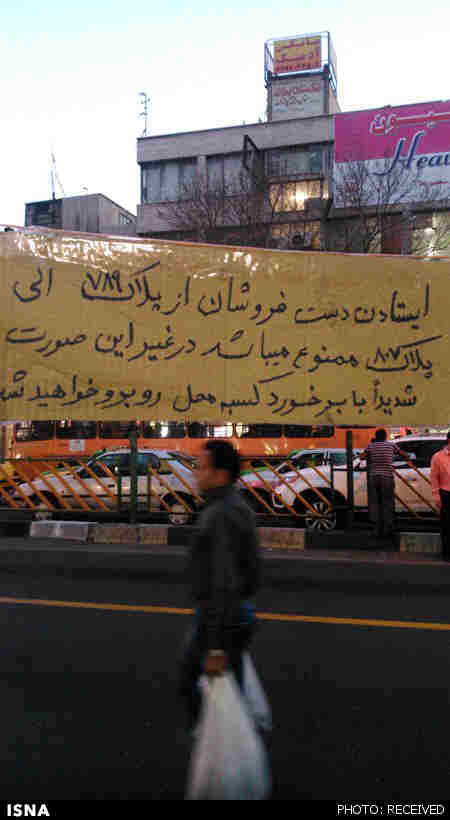 ایستادن دست فروشان از پلاک ۷۸۹ الی
پلاک ۸۰۷ ممنوع میباشد در غیر این صورت
شدیداً با برخورد کسبه محل روبرو خواهید شد
Heav
ISNA
PHOTO: RECEIVED